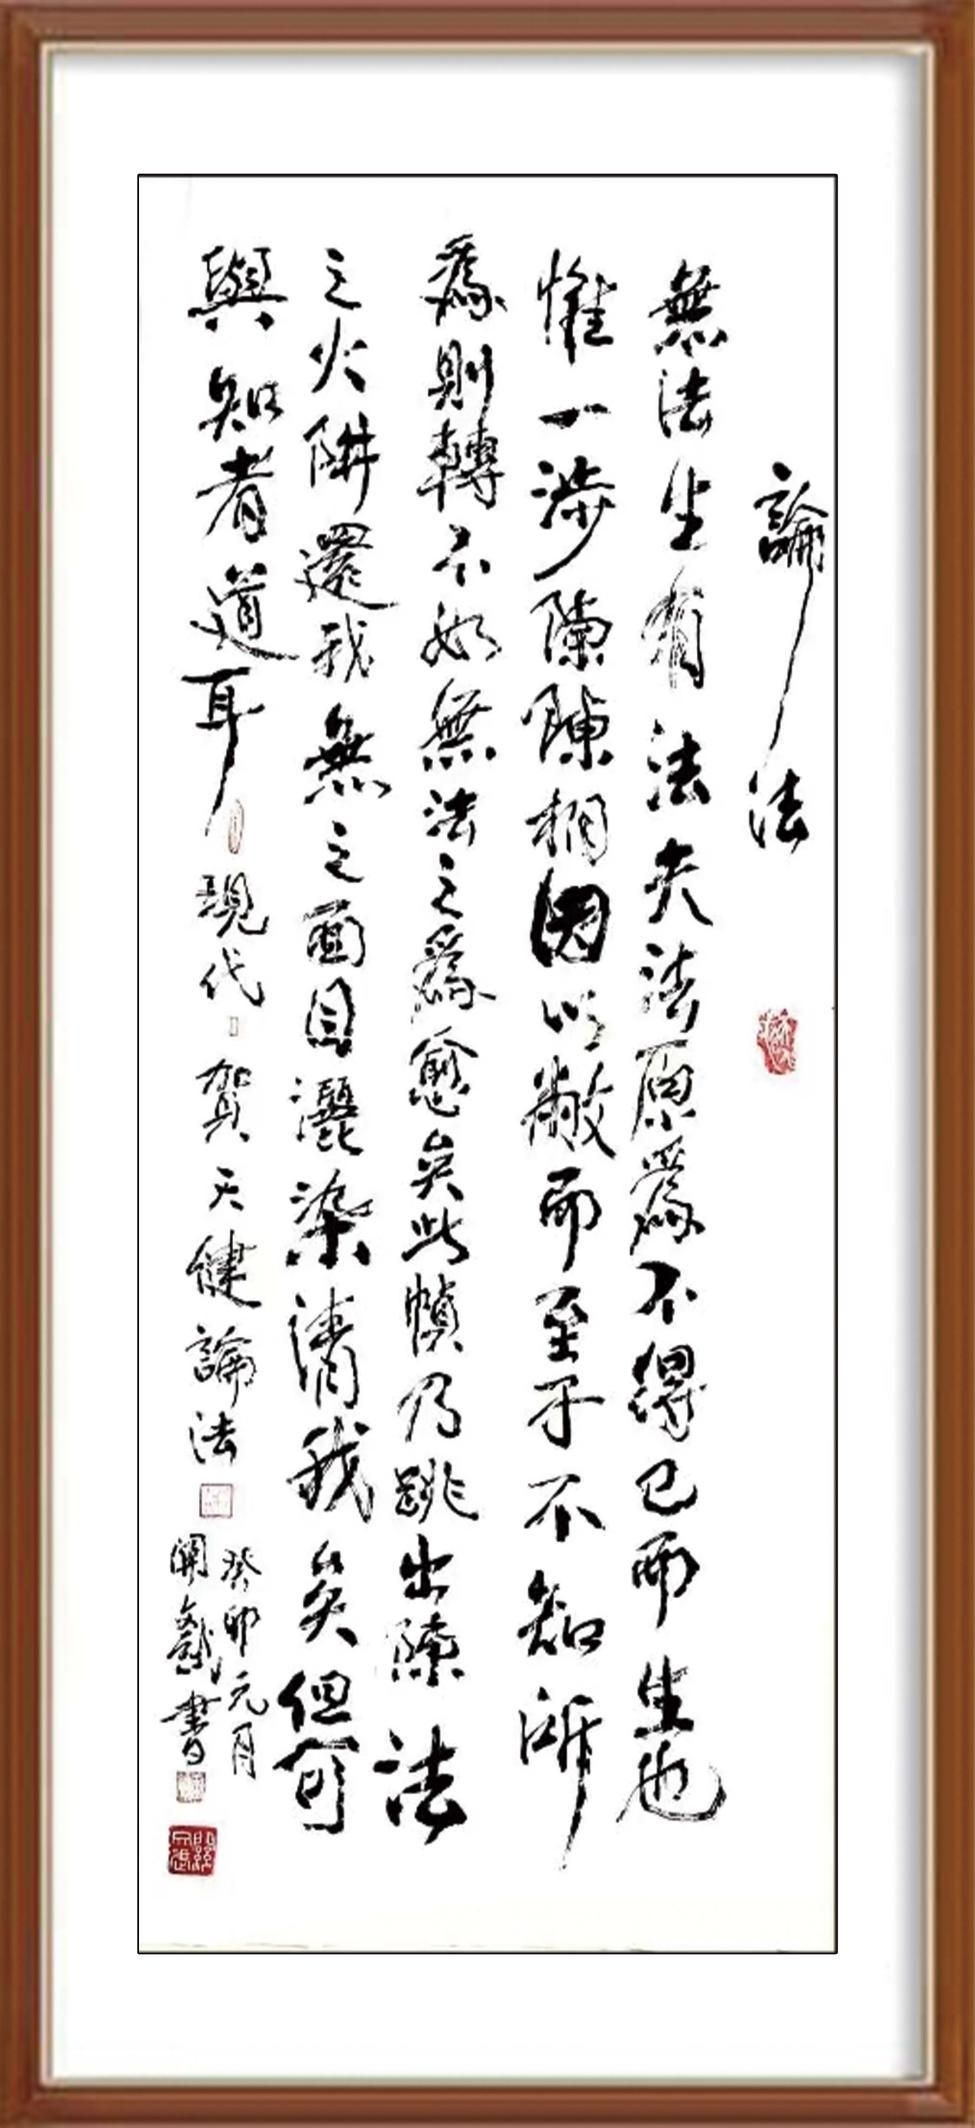 論法
無法生有法夫法原爲不得已而生也
惟一涉陳陳相因以敝而至于不知所
爲則轉不如無法之爲愈矣此幀乃跳出陳法
之火阱還我無之面目灑染清我矣但可
與知者道耳 現代 賀天健論法
癸卯元月
書